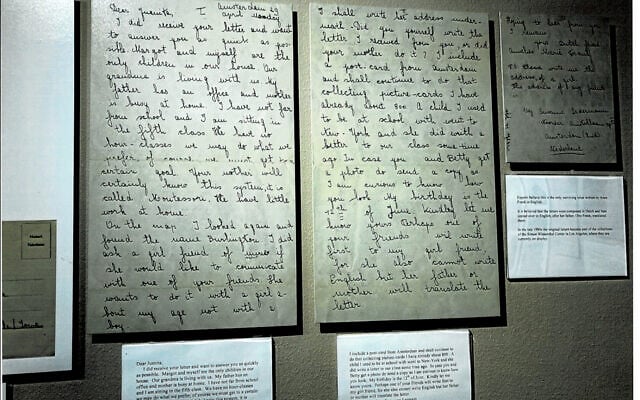 Amsterdam 29
april Monday
Dear Juanita,
I did receive your letter and want
to answer you as quick as pos-
sible. Margot and myself are the
only children in our house. Our
grandma is living with us. My
father has an office and mother
is busy at home. I have not far
from school and I am sitting in
the fifth class. We have no
hour-classes we may do what we
prefer, of course we must get to a
certain goal. Your mother will
certainly know this system, it is
called Montessori. We have little
work at home.
On the map I looked again and
found the name Burlington. I did
ask a girl friend of mine if
she would like to communicate
with one of your friends. She
wants to do it with a girl a-
bout my age not with a
boy.
I shall write her address under-
neath. Did you yourself write the
letter I received from you, or did
your mother do it? I include
a post-card from Amsterdam
and shall continue to do that
collecting picture-cards I have
already about 800. A child I used
to be at school with went to
New-York and she did write a
letter to our class some time
ago. In case you and Betty get
a photo do send a copy as
I am curious to know how
you look. My birthday is the
12th of June. Kindly let me
know yours. Perhaps one of
your friends will write
first to my girl friend,
for she also cannot write
English but her father or
mother will translate the
letter.
Hoping to hear from you
I remain
your Dutch friend
Annelies Marie Frank.
address of a girl.
The address of my friend
is:
Amsterdam (Zuid)
Nederland
Dear Juanita,
I did receive your letter and want to answer you as quickly
as possible. Margot and myself are the only children in our
house. Our grandma is living with us. My father has an
office and mother is busy at home. I have not far from school
and I am sitting in the fifth class. We have no hour-classes
I include a post-card from Amsterdam and shall continue to
do that collecting picture-cards I have already about 800. A
child I used to be at school with went to New-York and she
did write a letter to our class some time ago. In case you and
Betty get a photo do send a copy as I am curious to know how
you look. My birthday is the 12th of June. Kindly let me
know yours. Perhaps one of your friends will write first to
my girl friend, for she also cannot write English but her father
or mother will translate the letter.